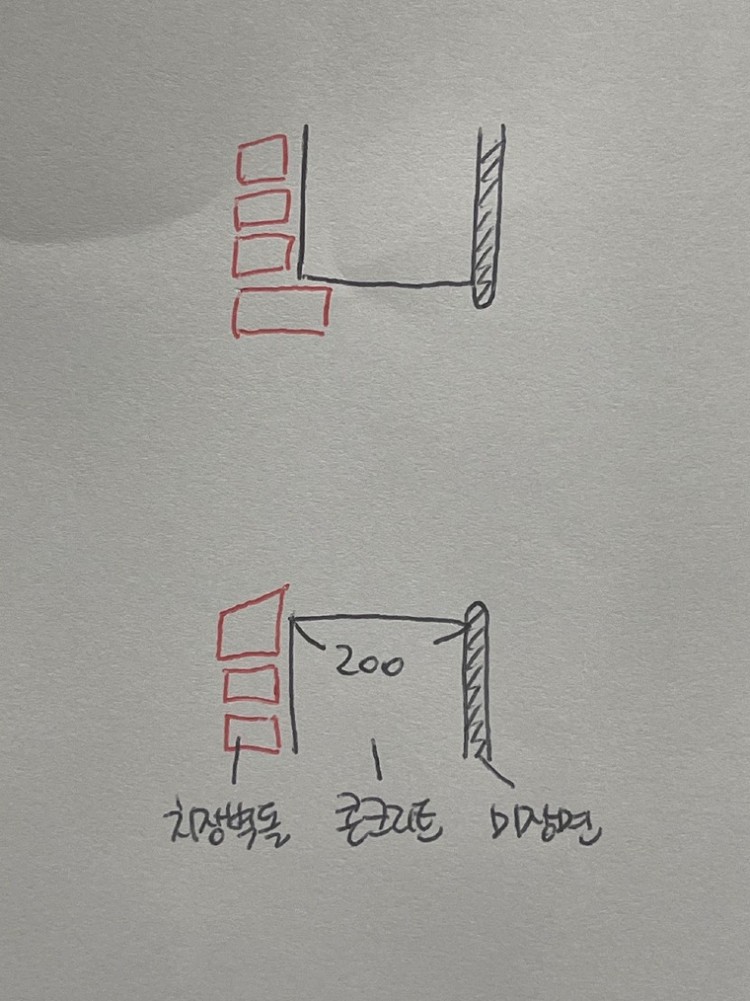 200
치장벽돌 콘크리트 미장면